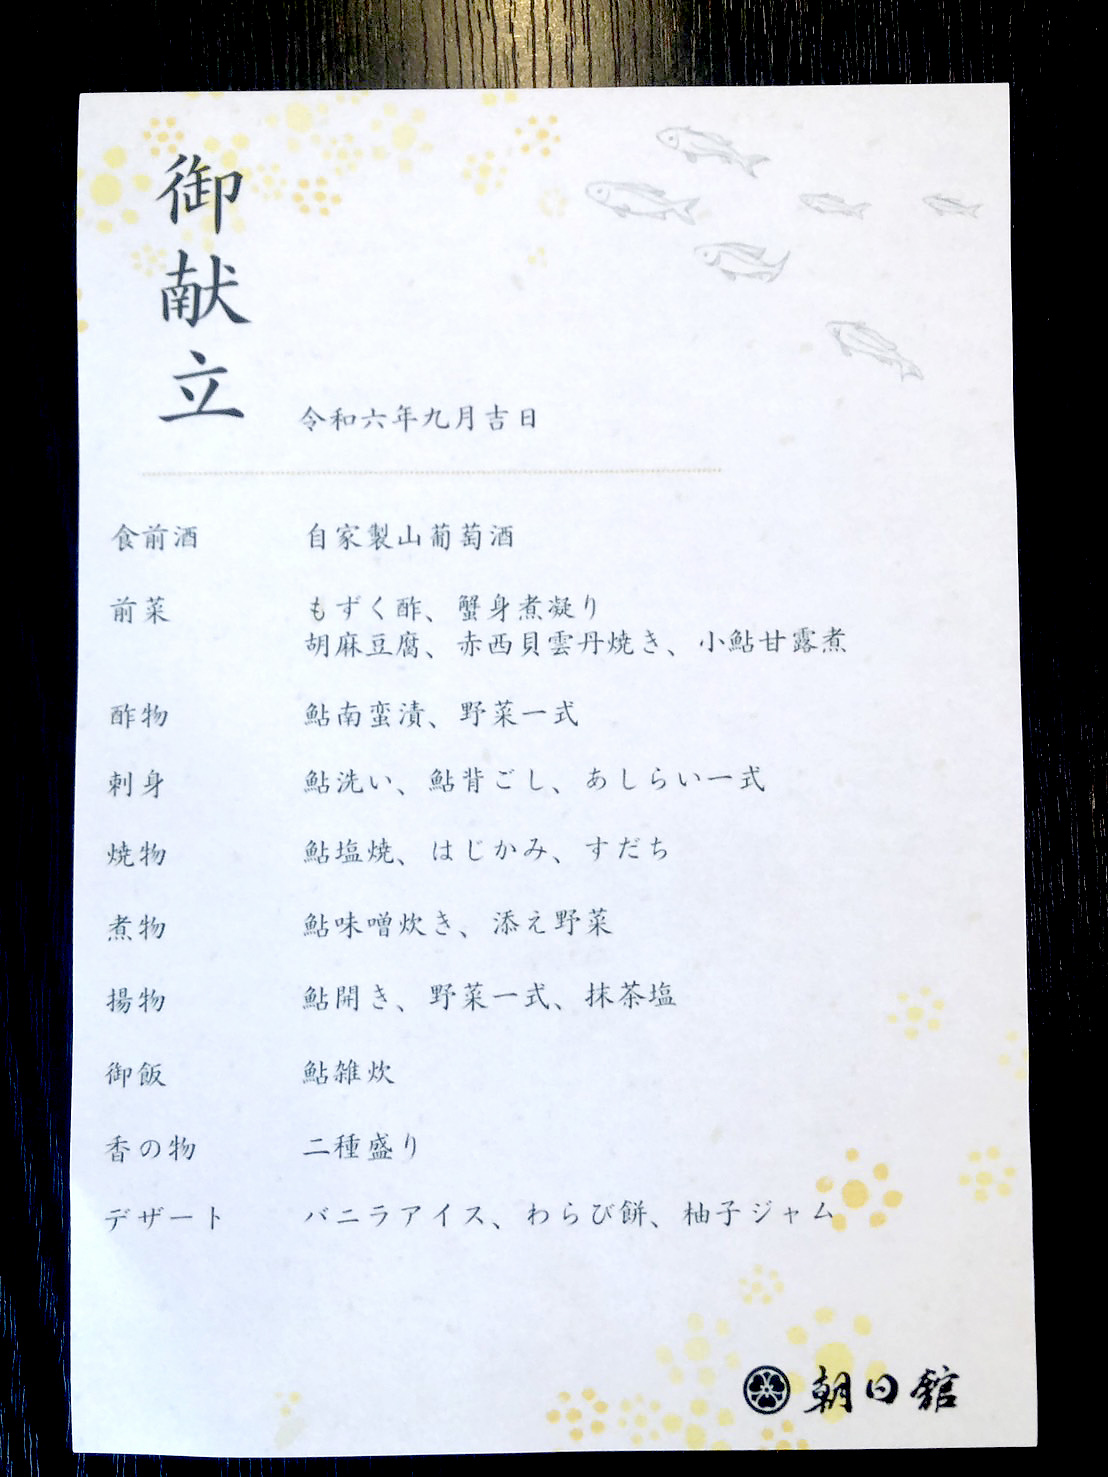 御献立
令和六年九月吉日
食前酒 自家製山葡萄酒
前菜 もずく酢、蟹身煮凝り
胡麻豆腐、赤西貝雲丹焼き、小鮎甘露煮
酢物 鮎南蛮漬、野菜一式
刺身 鮎洗い、鮎背ごし、あしらい一式
焼物 鮎塩焼、はじかみ、すだち
煮物 鮎味噌炊き、添え野菜
揚物 鮎開き、野菜一式、抹茶塩
御飯 鮎雑炊
香の物 二種盛り
デザート バニラアイス、わらび餅、柚子ジャム
朝日館